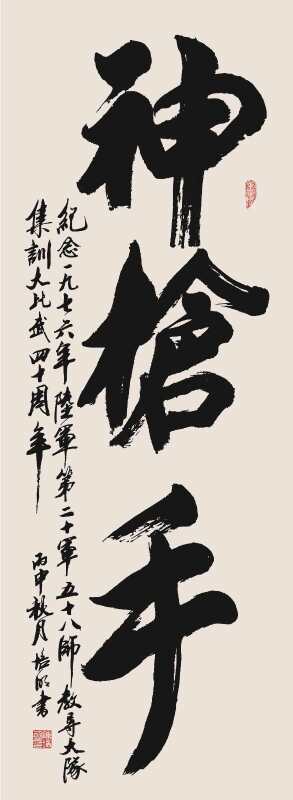 神槍手
紀念一九七六年陸軍第二十軍五十八師教导大隊
集訓大比武四十周年
丙申秋月培明書